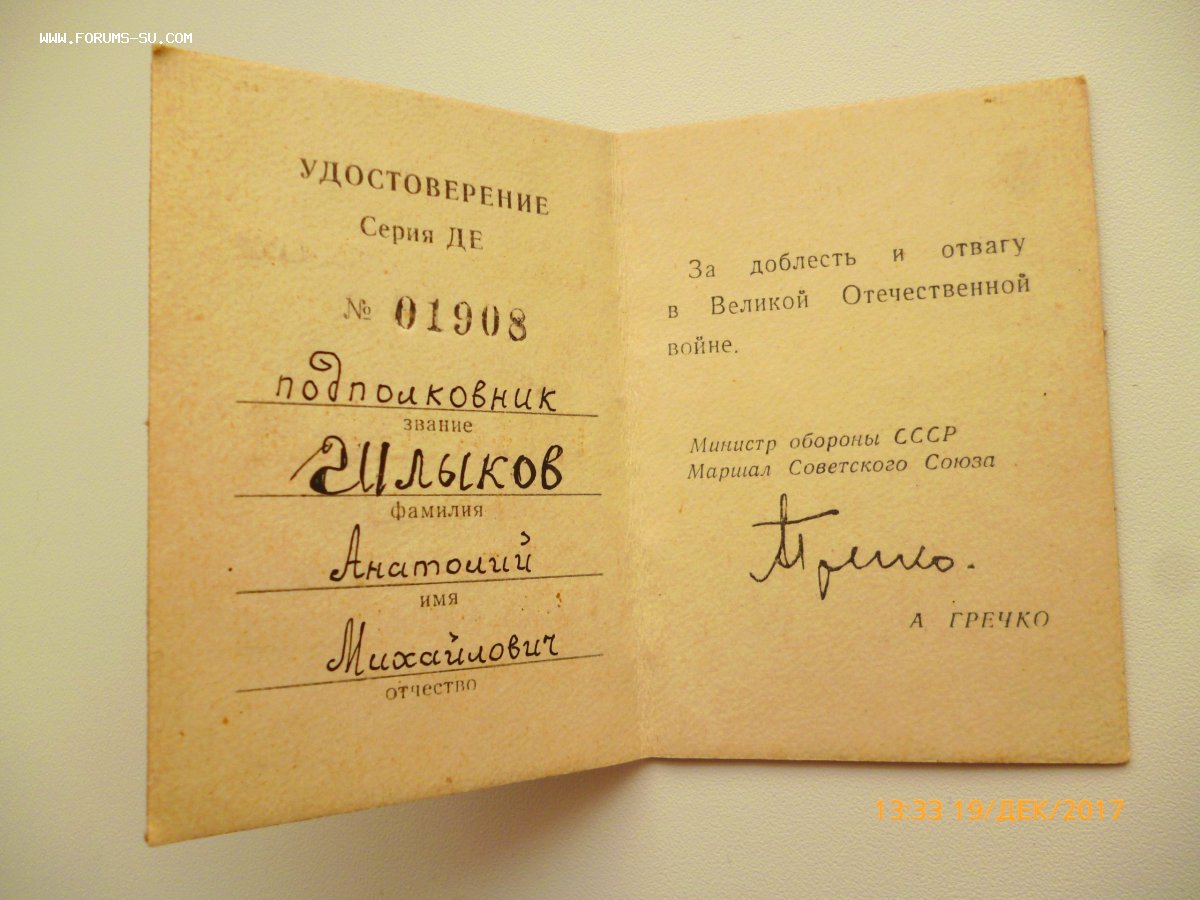 WWW.FORUMS-SU.COM
УДОСТОВЕРЕНИЕ
Серия ДЕ
№ 01908
подполковник
звание
Шлыков
фамилия
Анатолий
имя
Михайлович
отчество
За доблесть и отвагу
в Великой Отечественной
войне.
Министр обороны СССР
Маршал Советского Союза
АГречко.
А ГРЕЧКО
13:33 19/ДЕК/2017